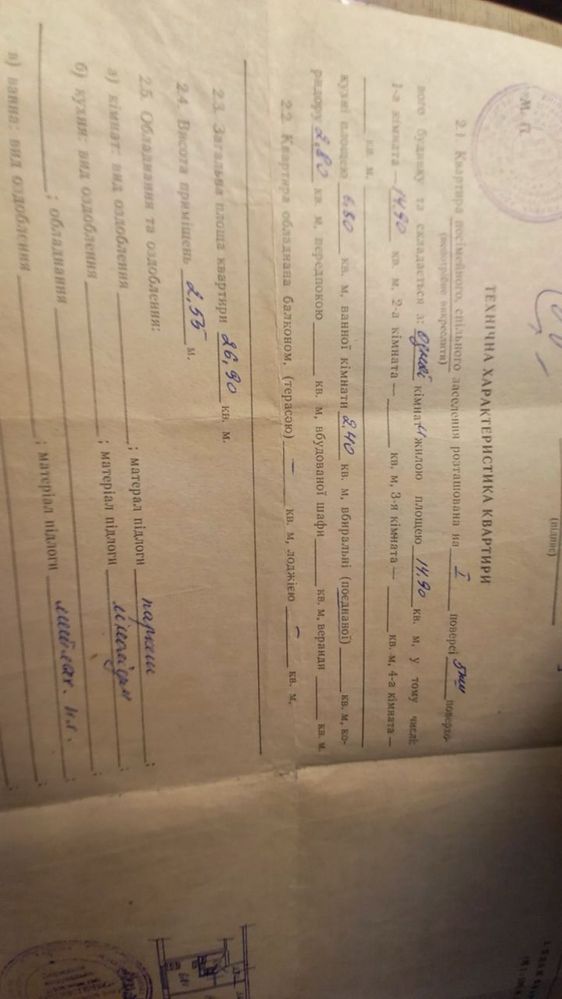 (підпис)
М. П.
ТЕХНІЧНА ХАРАКТЕРИСТИКА КВАРТИРИ
2.1 Квартира посімейного, спільного заселення розташована на I поверсі 5ти поверхо-
(непотрібне викреслити)
вого будинку та складається з: одної кімнати жилою площею 14.90 кв. м, у тому числі:
1-а кімната — 14.90 кв. м, 2-а кімната — кв. м, 3-я кімната — кв. м, 4-а кімната —
кв. м,
кухні площею 6.80 кв. м, ванної кімнати 2.40 кв. м, вбиральні (поєднаної) кв. м, ко-
ридору 2,80 кв. м, передпокою кв. м, вбудованої шафи кв. м, веранди кв. м.
2.2 Квартира обладнана балконом, (терасою) — кв. м, лоджією — кв. м.
2.3. Загальна площа квартири 26,90 кв. м.
2.4. Висота приміщень 2,55 м.
2.5. Обладнання та оздоблення:
а) кімнат: вид оздоблення ; матерал підлоги паркет ;
б) кухня: вид оздоблення ; матеріал підлоги лінолеум ;
; обладнання ; матеріал підлоги
в) ванна: вид оздоблення